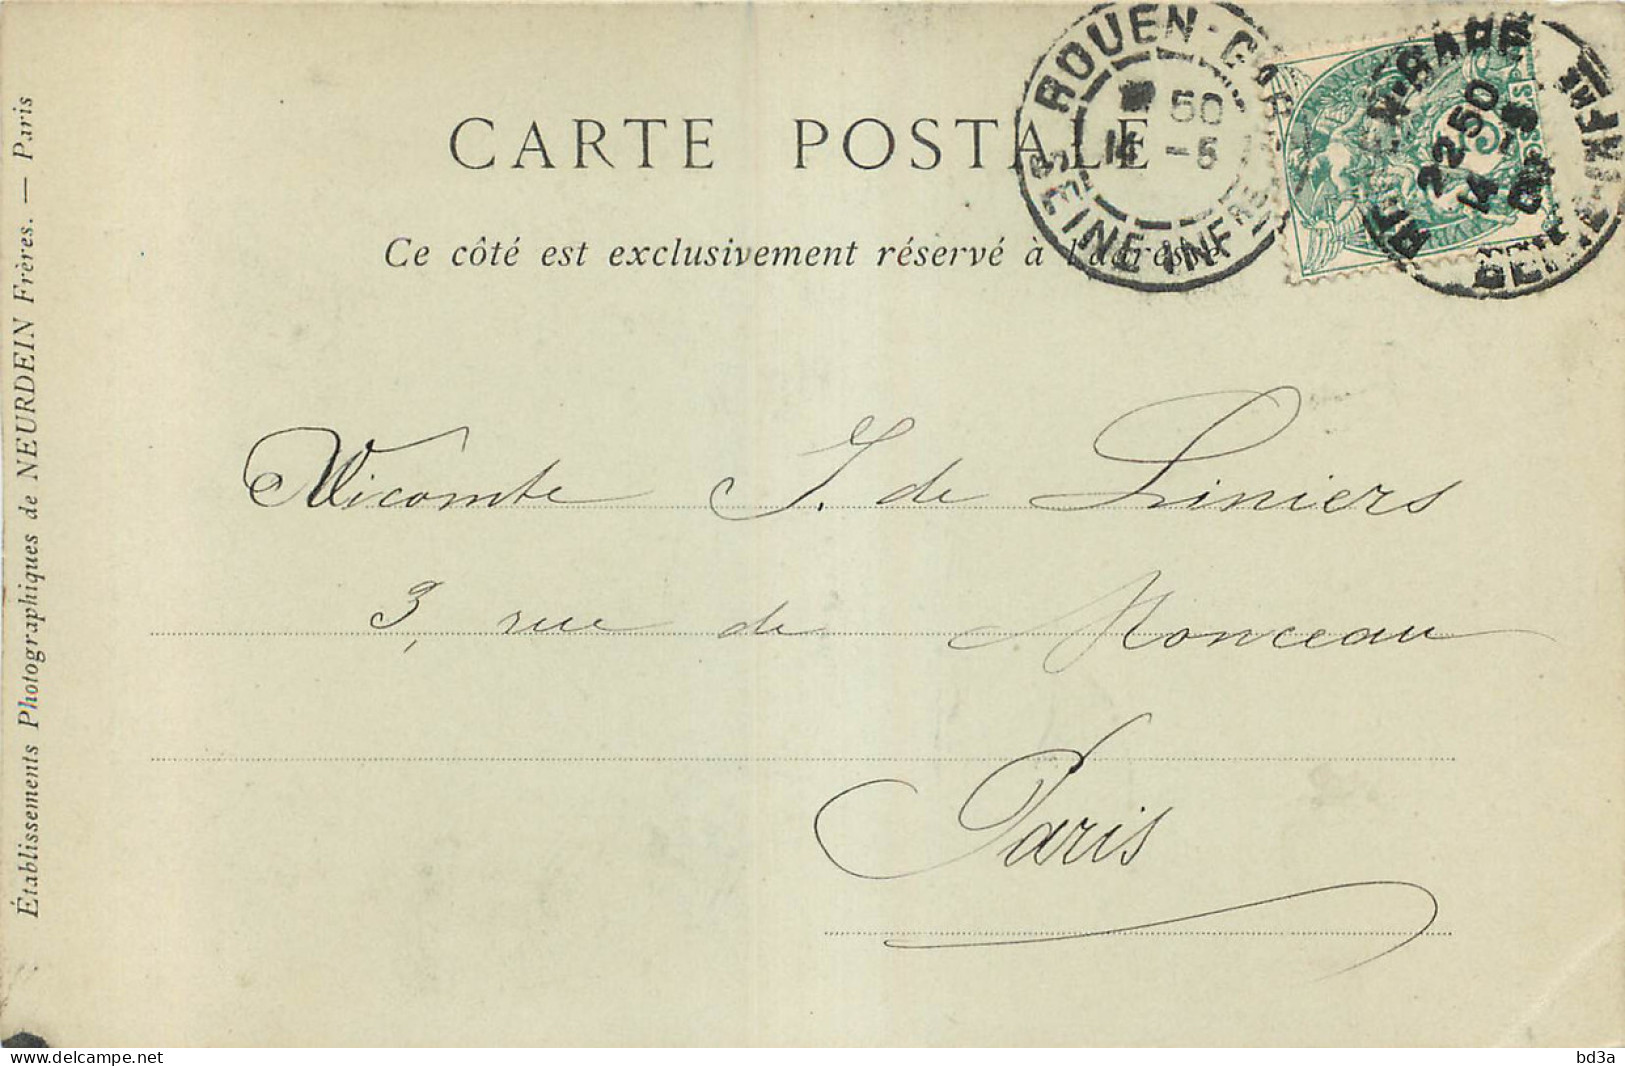 CARTE POSTALE
Ce côté est exclusivement réservé à l'adresse
ROUEN-GARE
50
14 -5
SEINE INFRE
22 50
14 -5
Vicomte J. de Liniers
3, rue de Monceau
Paris
Établissements Photographiques de NEURDEIN Frères. — Paris
delcampe.net
bd3a